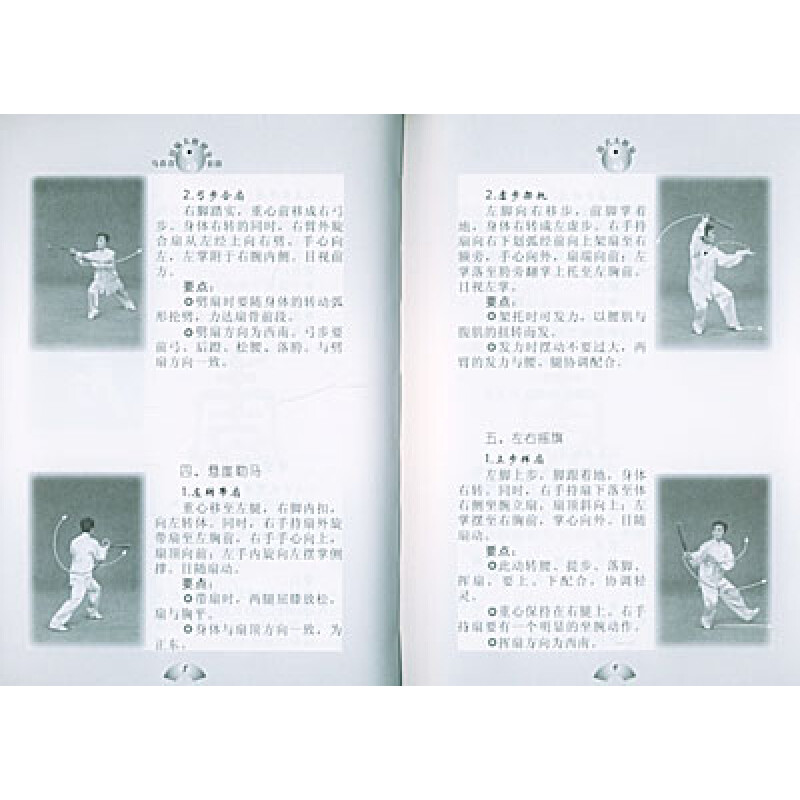 2.弓步合扇
右脚踏实，重心前移成右弓
步。身体右转的同时，右臂外旋
合扇从左经上向右劈，手心向
左，左掌附于右腕内侧。目视前
方。
要点：
✪劈扇时要随身体的转动弧
形抡劈，力达扇骨前段。
✪劈扇方向为西南。弓步要
前弓、后蹬、松腰、落胯。与劈
扇方向一致。
四、悬崖勒马
重心移至左腿，右脚内扣，
向左转体。同时，右手持扇外旋
带扇至左胸前，右手手心向上，
扇顶向前；左手内旋向左摆掌侧
撑。目随扇动。
要点：
✪带扇时，两腿屈膝放松。
扇与胸平。
✪身体与扇顶方向一致，为
正东。
2.虚步架托
左脚向右移步，前脚掌着
地，身体右转成左虚步。右手持
扇向右下划弧经前向上架扇至右
额旁，手心向外，扇端向前；左
掌落至胯旁翻掌上托至左胸前。
目视左掌。
要点：
✪架托时可发力，以腰肌与
腹肌的扭转而发。
✪发力时摆动不要过大，两
臂的发力与腰、腿协调配合。
五、左右摇旗
1.上步挥扇
左脚上步，脚跟着地，身体
右转。同时，右手持扇下落至体
右侧坐腕立扇，扇顶斜向上；左
掌摆至右胸前，掌心向外。目随
扇动。
要点：
✪此动转腰、提步、落脚、
挥扇，要上、下配合，协调轻
灵。
✪重心保持在右腿上。右手
持扇要有一个明显的坐腕动作。
✪挥扇方向为西南。